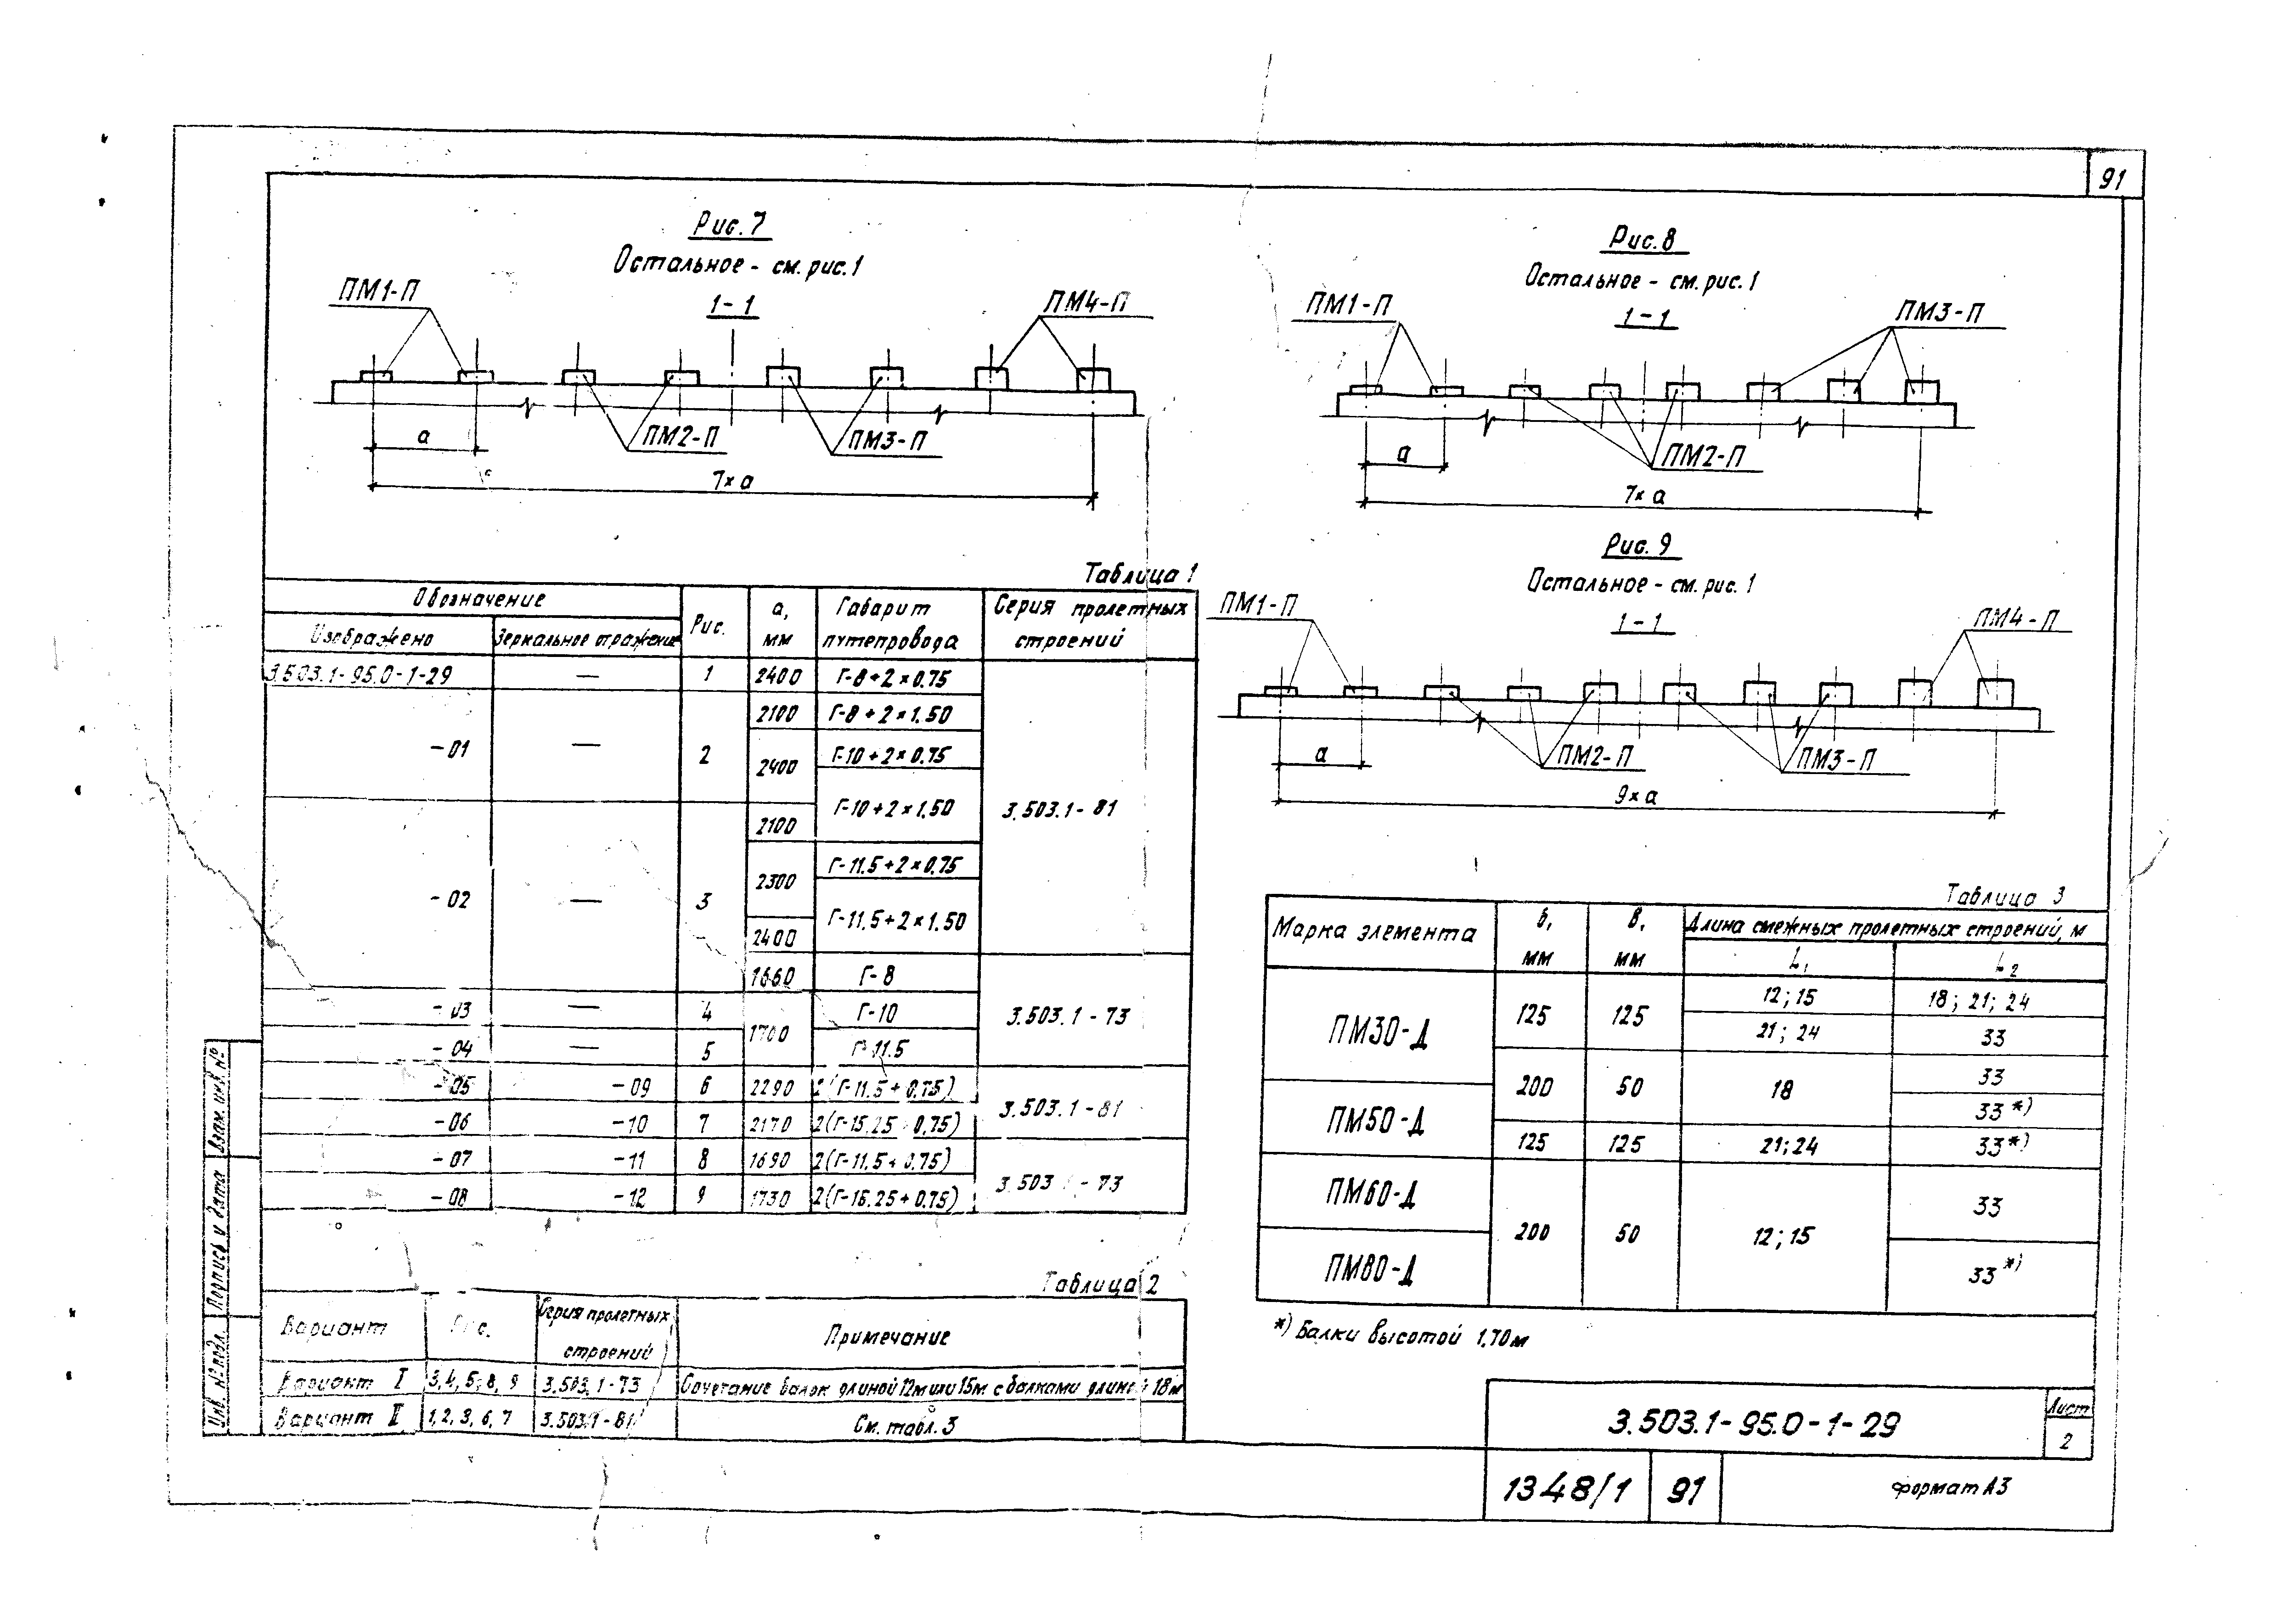 91
Рис. 7
Остальное - см. рис. 1
1-1
ПМ1-П
ПМ4-П
ПМ2-П
ПМ3-П
а
7×а
Рис. 8
Остальное - см. рис. 1
1-1
ПМ1-П
ПМ3-П
ПМ2-П
а
7×а
Рис. 9
Остальное - см. рис. 1
1-1
ПМ1-П
ПМ4-П
ПМ2-П
ПМ3-П
а
9×а
Таблица 1
Обозначение
Рис.
а, мм
Габарит путепровода
Серия пролетных строений
Изображено
Зеркальное отражение
3.503.1-95.0-1-29 — 1 2400 Г-8+2×0.75
2100 Г-8+2×1.50
-01 — 2 2400 Г-10+2×0.75
Г-10+2×1.50 3.503.1-81
2100
-02 — 3 2300 Г-11.5+2×0.75
Г-11.5+2×1.50
2400
1660 Г-8
-03 — 4 1700 Г-10 3.503.1-73
-04 — 5 Г-11.5
-05 -09 6 2290 2(Г-11.5+0.75) 3.503.1-81
-06 -10 7 2170 2(Г-15.25 0.75)
-07 -11 8 1690 2(Г-11.5+0.75) 3.503 - 73
-08 -12 9 1730 2(Г-15.25+0.75)
Таблица 2
Вариант Рис. Серия пролетных строений Примечание
Вариант I 3, 4, 5, 8, 9 3.503.1-73 Сочетание балок длиной 12м или 15м с балками длиной 18м
Вариант II 1, 2, 3, 6, 7 3.503.1-81 См. табл. 3
Таблица 3
Марка элемента
б, мм
в, мм
Длина смежных пролетных строений, м
L1 L2
ПМ30-Д 125 125 12; 15 18; 21; 24
21; 24 33
200 50 18 33
ПМ50-Д 33*)
125 125 21; 24 33*)
ПМ60-Д 200 50 12; 15 33
ПМ80-Д 33*)
*) Балки высотой 1,70м
Взам. инв. №
Подпись и дата
Инв. № подл.
3.503.1-95.0-1-29
Лист
2
1348/1
91
Формат А3